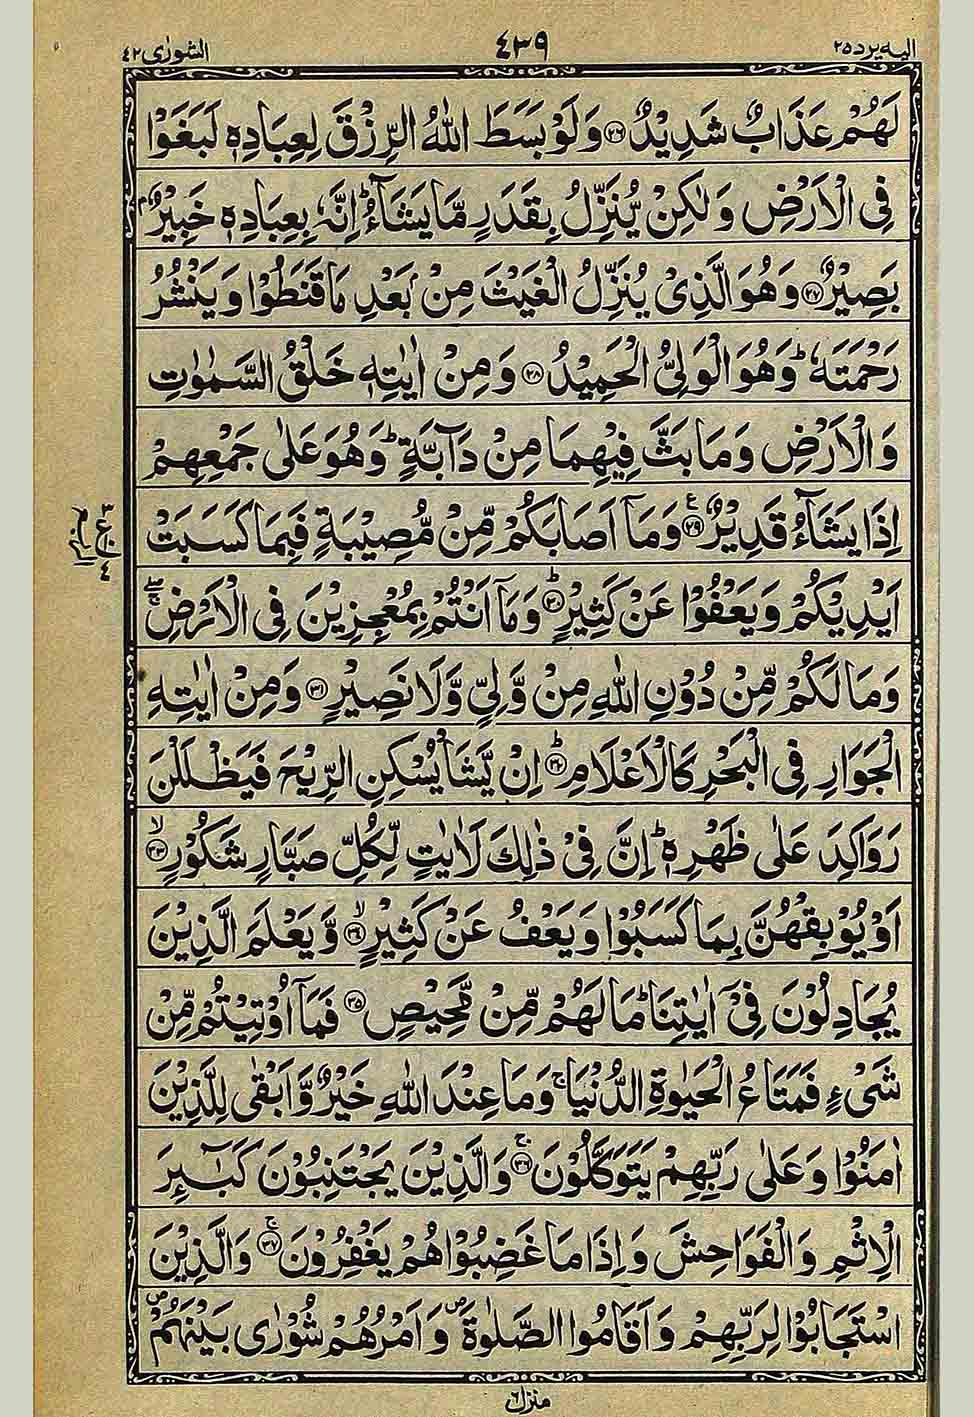 اليه يرد ٢٥
٤٣٩
الشورٰى ٤٢
لَهُمْ عَذَابٌ شَدِيْدٌ ۝٢٦ وَلَوْ بَسَطَ اللّٰهُ الرِّزْقَ لِعِبَادِهٖ لَبَغَوْا
فِى الْاَرْضِ وَلٰكِنْ يُّنَزِّلُ بِقَدَرٍ مَّا يَشَآءُ ؕ اِنَّهٗ بِعِبَادِهٖ خَبِيْرٌۢ
بَصِيْرٌ ۝٢٧ وَهُوَ الَّذِىْ يُنَزِّلُ الْغَيْثَ مِنْۢ بَعْدِ مَا قَنَطُوْا وَيَنْشُرُ
رَحْمَتَهٗ ؕ وَهُوَ الْوَلِىُّ الْحَمِيْدُ ۝٢٨ وَمِنْ اٰيٰتِهٖ خَلْقُ السَّمٰوٰتِ
وَالْاَرْضِ وَمَا بَثَّ فِيْهِمَا مِنْ دَآبَّةٍ ؕ وَهُوَ عَلٰى جَمْعِهِمْ
اِذَا يَشَآءُ قَدِيْرٌ ۝٢٩ۧ وَمَاۤ اَصَابَكُمْ مِّنْ مُّصِيْبَةٍ فَبِمَا كَسَبَتْ
اَيْدِيْكُمْ وَيَعْفُوْا عَنْ كَثِيْرٍ ؕ۝٣٠ وَمَاۤ اَنْتُمْ بِمُعْجِزِيْنَ فِى الْاَرْضِ ۖۚ
وَمَا لَكُمْ مِّنْ دُوْنِ اللّٰهِ مِنْ وَّلِىٍّ وَّلَا نَصِيْرٍ ۝٣١ وَمِنْ اٰيٰتِهِ
الْجَوَارِ فِى الْبَحْرِ كَالْاَعْلَامِ ؕ۝٣٢ اِنْ يَّشَاْ يُسْكِنِ الرِّيْحَ فَيَظْلَلْنَ
رَوَاكِدَ عَلٰى ظَهْرِهٖ ؕ اِنَّ فِىْ ذٰلِكَ لَاٰيٰتٍ لِّكُلِّ صَبَّارٍ شَكُوْرٍ ۙ۝٣٣
اَوْ يُوْبِقْهُنَّ بِمَا كَسَبُوْا وَيَعْفُ عَنْ كَثِيْرٍ ۙ۝٣٤ وَّيَعْلَمَ الَّذِيْنَ
يُجَادِلُوْنَ فِىْۤ اٰيٰتِنَا ؕ مَا لَهُمْ مِّنْ مَّحِيْصٍ ۝٣٥ فَمَاۤ اُوْتِيْتُمْ مِّنْ
شَىْءٍ فَمَتَاعُ الْحَيٰوةِ الدُّنْيَا ۚ وَمَا عِنْدَ اللّٰهِ خَيْرٌ وَّاَبْقٰى لِلَّذِيْنَ
اٰمَنُوْا وَعَلٰى رَبِّهِمْ يَتَوَكَّلُوْنَ ۚ۝٣٦ وَالَّذِيْنَ يَجْتَنِبُوْنَ كَبٰٓئِرَ
الْاِثْمِ وَالْفَوَاحِشَ وَاِذَا مَا غَضِبُوْا هُمْ يَغْفِرُوْنَ ۚ۝٣٧ وَالَّذِيْنَ
اسْتَجَابُوْا لِرَبِّهِمْ وَاَقَامُوا الصَّلٰوةَ ۪ وَاَمْرُهُمْ شُوْرٰى بَيْنَهُمْ ۪
منزل ٦